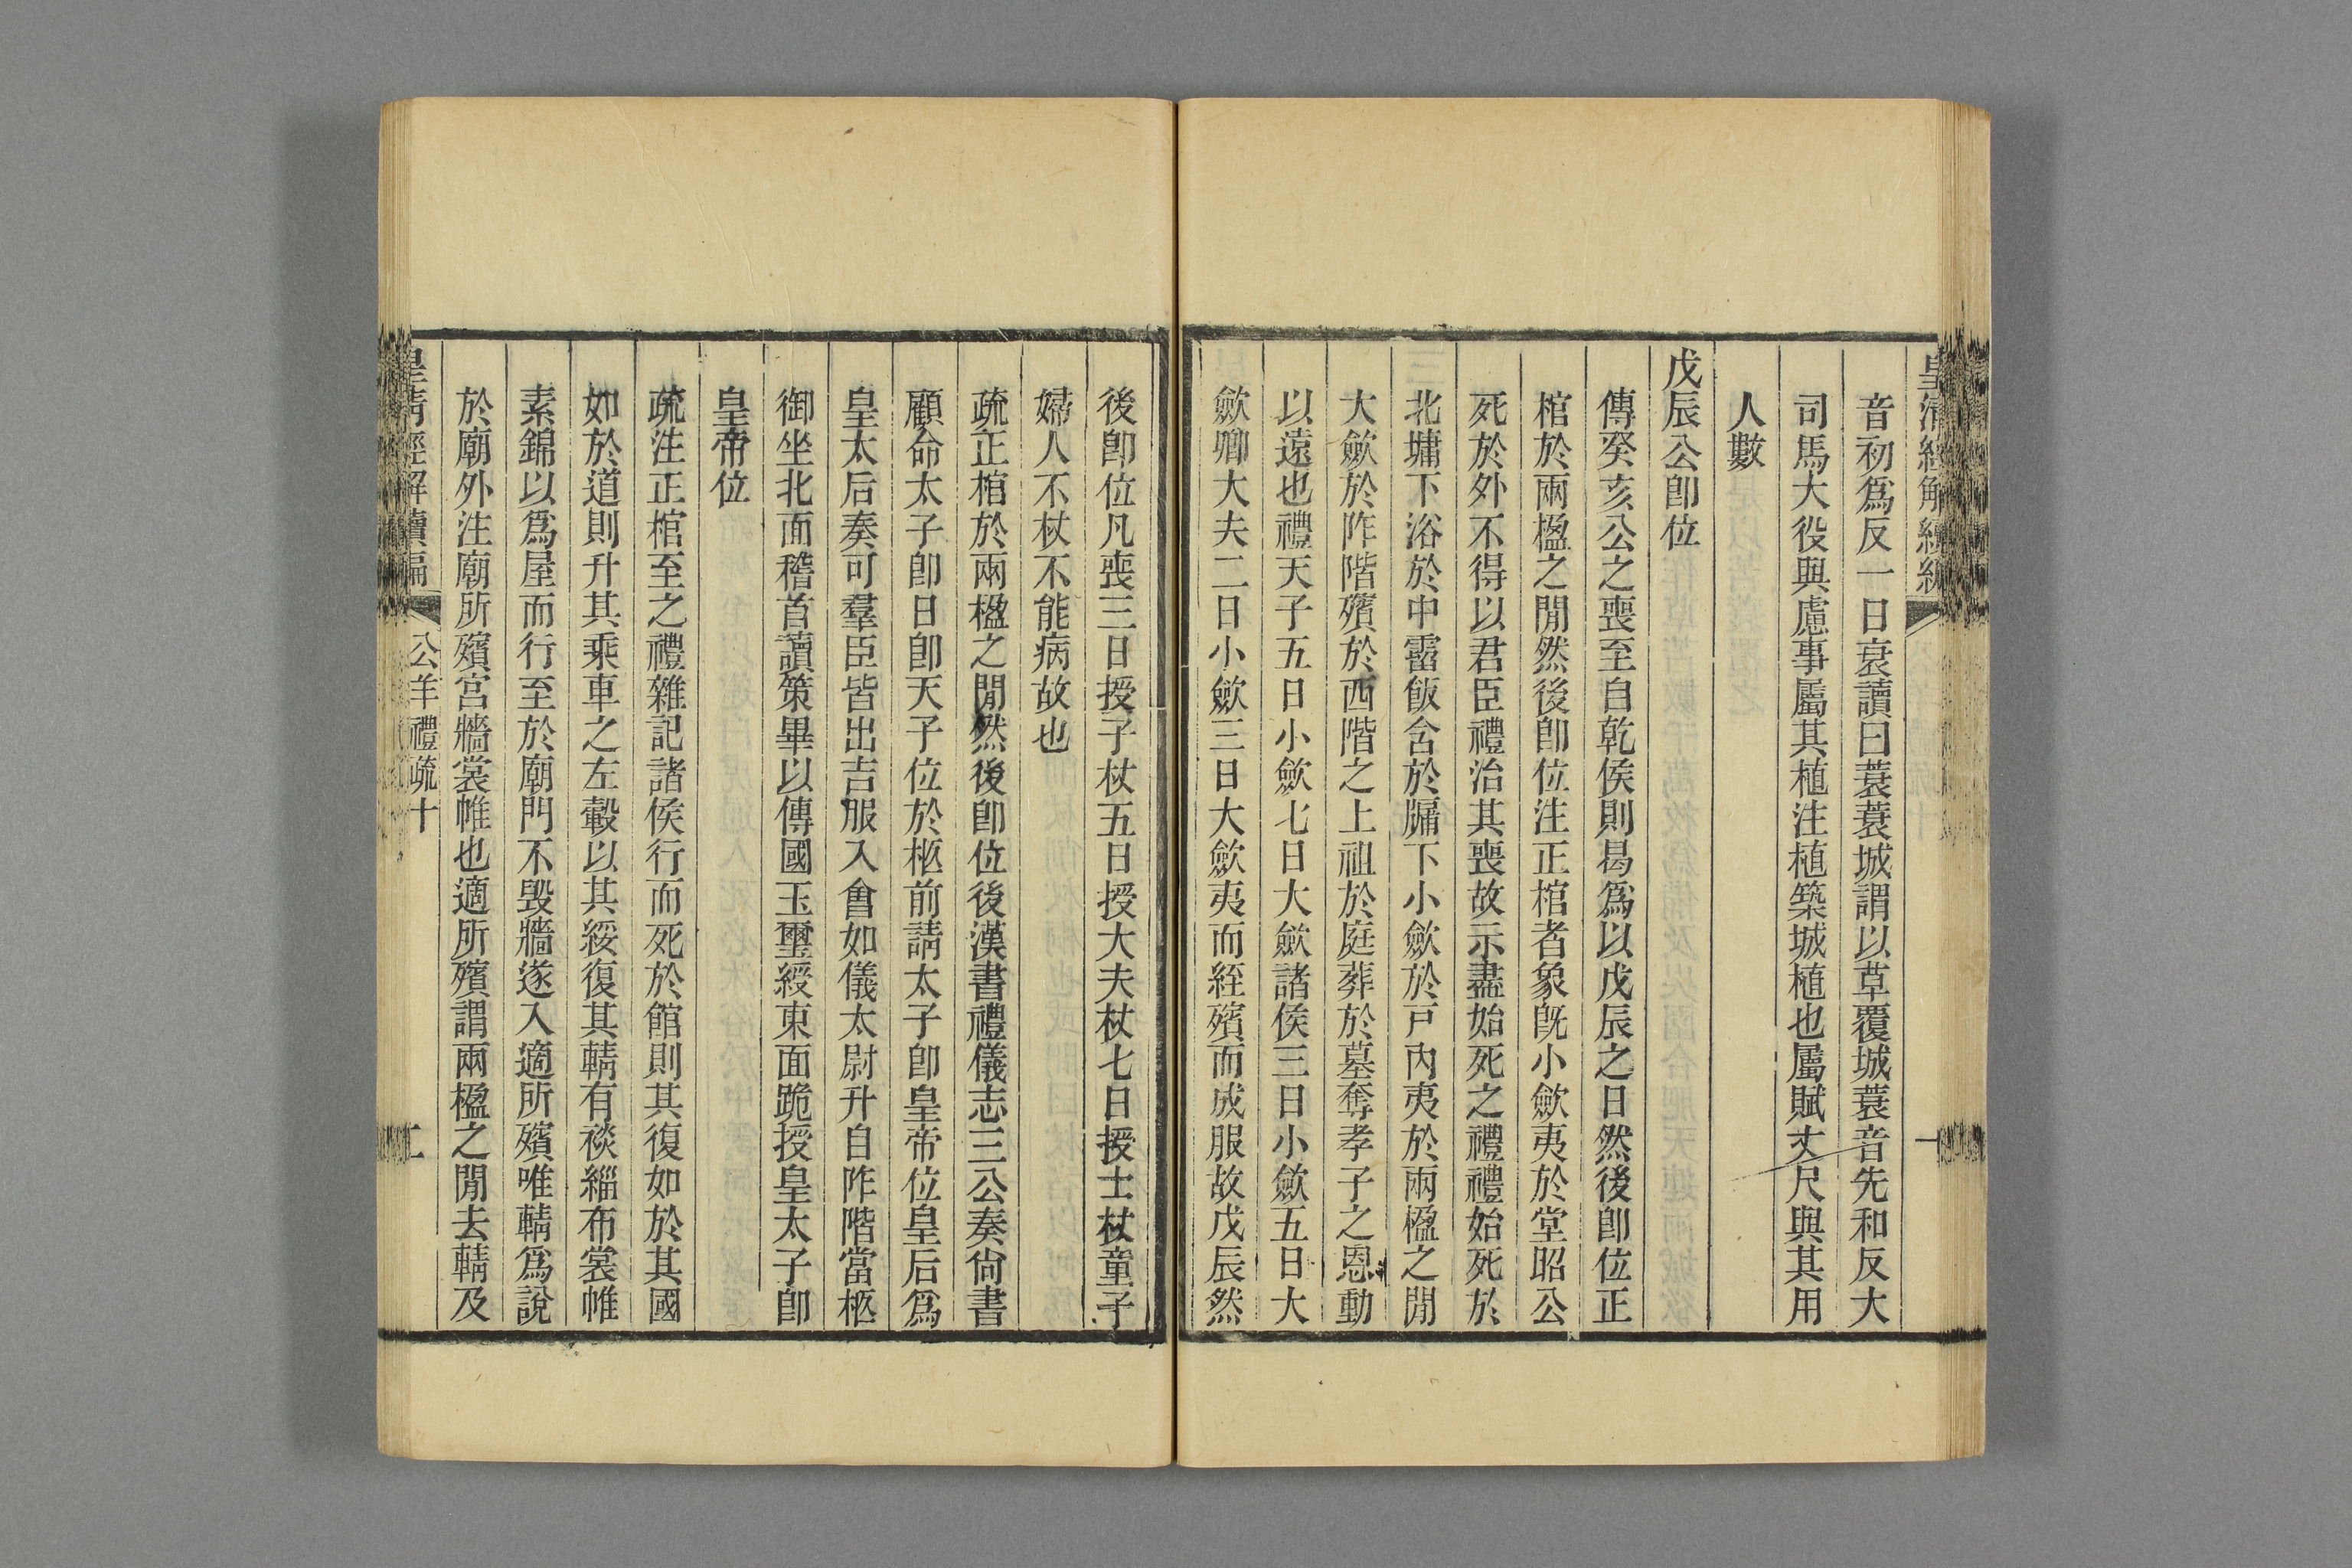 皇清經解續編 一
音初爲反一曰衰讀曰蓑蓑城謂以草覆城蓑音先和反大
司馬大役與慮事屬其植注植築城植也屬賦丈尺與其用
人數
戊辰公卽位
傳癸亥公之喪至自乾侯則曷爲以戊辰之日然後卽位正
棺於兩楹之閒然後卽位注正棺者象旣小歛夷於堂昭公
死於外不得以君臣禮治其喪故示盡始死之禮禮始死於
北墉下浴於中霤飯含於牖下小歛於戸內夷於兩楹之閒
大歛於阼階殯於西階之上祖於庭葬於墓奪孝子之恩動
以遠也禮天子五日小歛七日大歛諸侯三日小歛五日大
歛卿大夫二日小歛三日大歛夷而絰殯而成服故戊辰然
後卽位凡喪三日授子杖五日授大夫杖七日授士杖童子
婦人不杖不能病故也
疏正棺於兩楹之閒然後卽位後漢書禮儀志三公奏尙書
顧命太子卽日卽天子位於柩前請太子卽皇帝位皇后爲
皇太后奏可羣臣皆出吉服入會如儀太尉升自阼階當柩
御坐北面稽首讀策畢以傳國玉璽綬東面跪授皇太子卽
皇帝位
疏注正棺至之禮雜記諸侯行而死於館則其復如於其國
如於道則升其乘車之左轂以其綏復其輤有裧緇布裳帷
素錦以爲屋而行至於廟門不毀牆遂入適所殯唯輤爲說
於廟外注廟所殯宮牆裳帷也適所殯謂兩楹之閒去輤及
皇清經解續編 公羊禮疏十 二